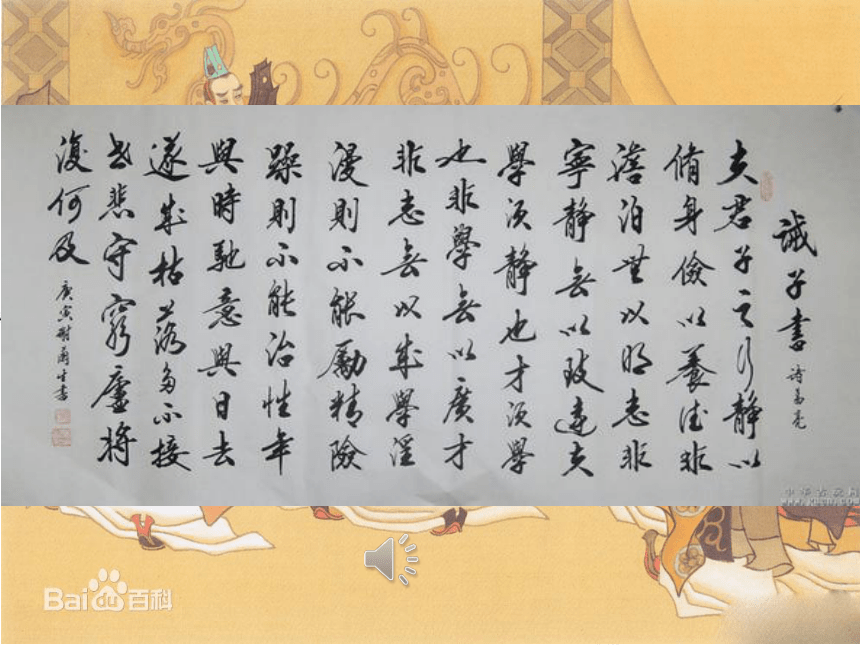 誡子書 諸葛亮
夫君子之行靜以
脩身儉以養德非
澹泊無以明志非
寧靜無以致遠夫
學須靜也才須學
也非學無以廣才
非志無以成學淫
漫則不能勵精險
躁則不能治性年
與時馳意與日去
遂成枯落多不接
世悲守窮廬將
復何及
庚寅 書
Bai du 百科